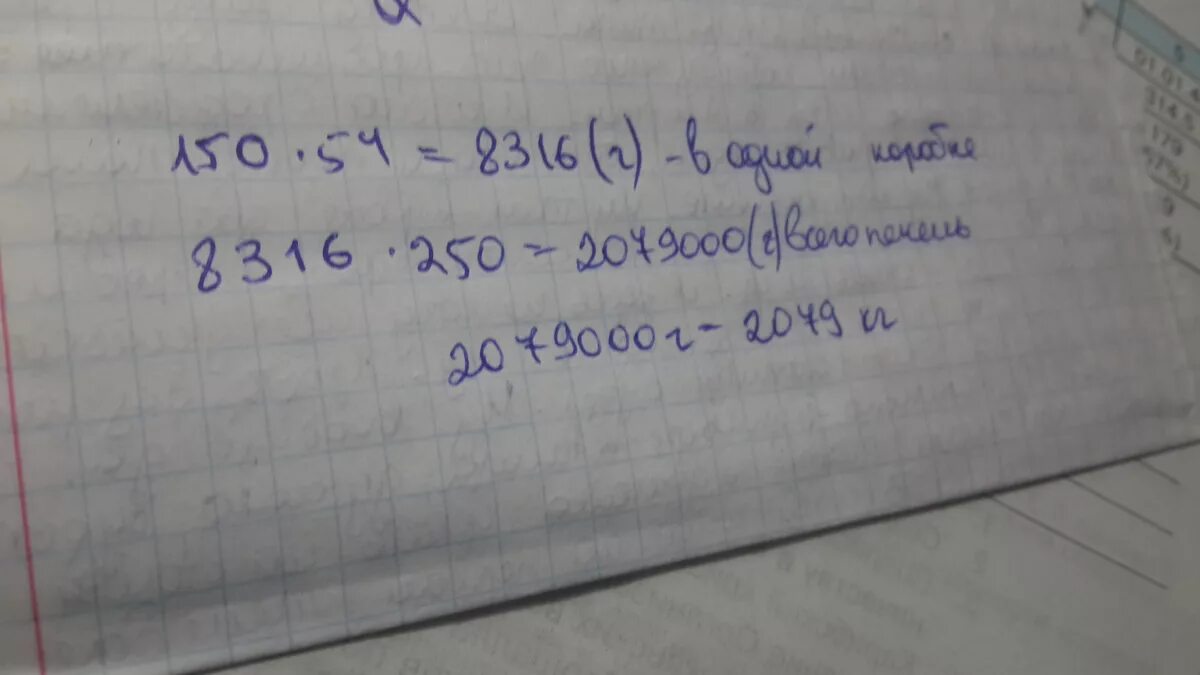 150 · 54 = 8316 (г) - в одной коробке
8316 · 250 = 2079000 (г) всего печень
2079000 г = 2079 кг
5
01.01.4
314.5
179